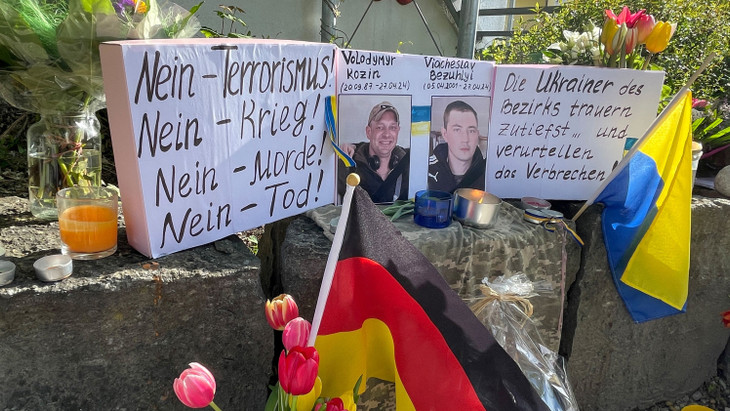 Nein - Terrorismus!
Nein - Krieg!
Nein - Morde!
Nein - Tod!
Volodymyr
Kozin
(20.09.87 - 27.04.24)
Viacheslav
Bezuhlyi
(05.04.2001 - 27.04.24)
Die Ukrainer des
Bezirks trauern
zutiefst... und
verurteilen
das Verbrechen!